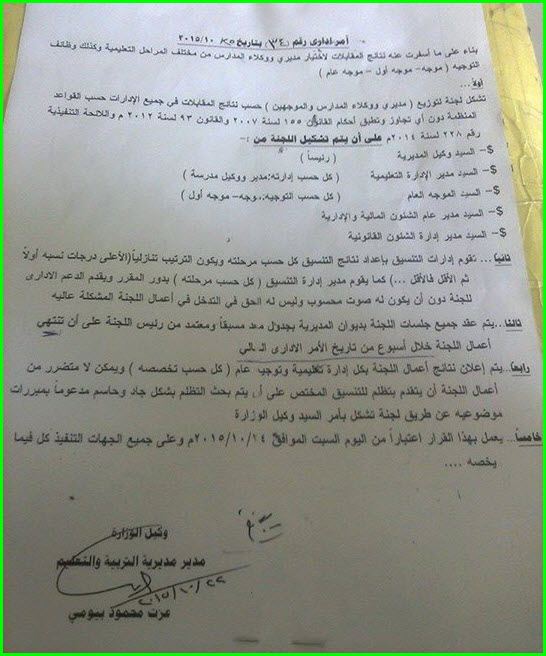 أمر إدارى رقم (٣٤) بتاريخ ٢٥ /٢٠١٥/١٠
بناء على ما أسفرت عنه نتائج المقابلات لأختيار مديري ووكلاء المدارس من مختلف المراحل التعليمية وكذلك وظائف
التوجيه ( موجه- موجه أول - موجه عام )
أولاً...
تشكل لجنة لتوزيع ( مديري ووكلاء المدارس والموجهين ) حسب نتائج المقابلات في جميع الإدارات حسب القواعد
المنظمة دون أي تجاوز وتطبق أحكام القانون ١٥٥ لسنة ٢٠٠٧ والقانون ٩٣ لسنة ٢٠١٢ م واللائحة التنفيذية
رقم ٢٢٨ لسنة ٢٠١٤م على أن يتم تشكيل اللجنة من :-
$- السيد وكيل المديرية ( رئيساً )
$- السيد مدير الإدارة التعليمية ( كل حسب إدارته:مدير ووكيل مدرسة )
$- السيد الموجه العام ( كل حسب التوجيه:موجه- موجه أول )
$- السيد مدير عام الشئون المالية والإدارية
$- السيد مدير إدارة الشئون القانونية
ثانياً... تقوم إدارات التنسيق بإعداد نتائج التنسيق كل حسب مرحلته ويكون الترتيب تنازلياً(الأعلى درجات نسبه أولاً
ثم الأقل فالأقل ...) كما يقوم مدير إدارة التنسيق ( كل حسب مرحلته ) بدور المقرر ويقدم الدعم الادارى
للجنة دون أن يكون له صوت محسوب وليس له الحق في التدخل في أعمال اللجنة المشكلة عاليه
ثالثاً...يتم عقد جميع جلسات اللجنة بديوان المديرية بجدول معد مسبقاً ومعتمد من رئيس اللجنة على أن تنتهي
أعمال اللجنة خلال أسبوع من تاريخ الأمر الادارى الحالي
رابعاً...يتم إعلان نتائج أعمال اللجنة بكل إدارة تعليمية وتوجيه عام ( كل حسب تخصصه ) ويمكن لا متضرر من
أعمال اللجنة أن يتقدم بتظلم للتنسيق المختص على أن يتم بحث التظلم بشكل جاد وحاسم مدعوماً بمبررات
موضوعيه عن طريق لجنة تشكل بأمر السيد وكيل الوزارة
خامساً... يعمل بهذا القرار اعتباراً من اليوم السبت الموافق ٢٠١٥/١٠/٢٤م وعلى جميع الجهات التنفيذ كل فيما
يخصه ....
وكيل الوزارة
مدير مديرية التربية والتعليم
٢٠١٥/١٠/٢٢
عزت محمود بيومي